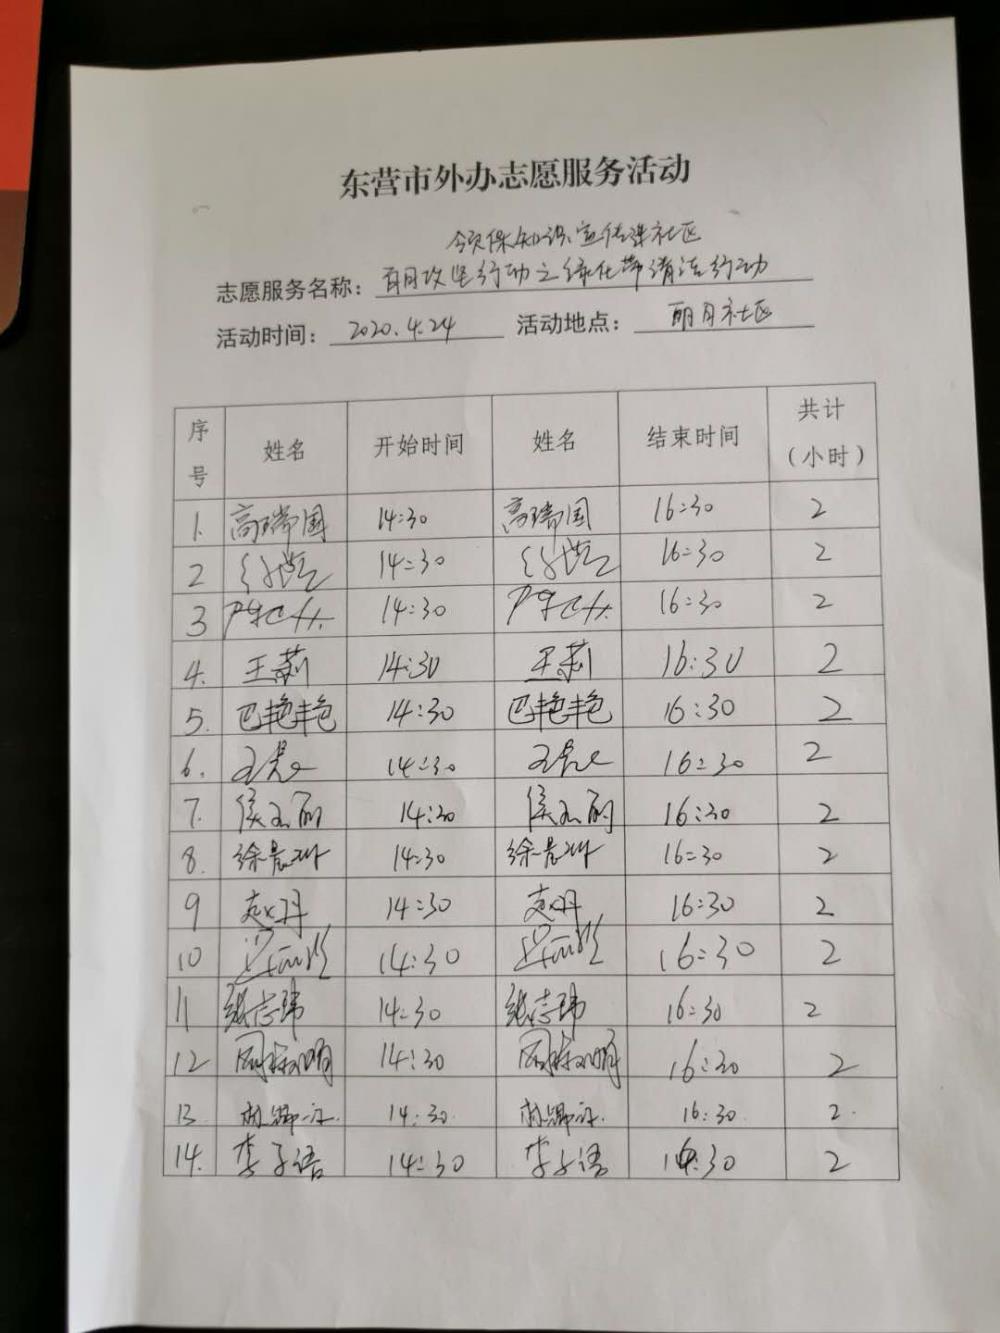 东营市外办志愿服务活动
领保知识宣传进社区
志愿服务名称：百日攻坚行动之绿化带清洁行动
活动时间：2020.4.24 活动地点：丽月社区
序号 姓名 开始时间 姓名 结束时间 共计（小时）
1. 高瑞国 14:30 高瑞国 16:30 2
2 14:30 16:30 2
3 14:30 16:30 2
4. 王莉 14:30 王莉 16:30 2
5. 巴艳艳 14:30 巴艳艳 16:30 2
6. 14:30 16:30 2
7. 侯玉丽 14:30 侯玉丽 16:30 2
8. 徐晨琳 14:30 徐晨琳 16:30 2
9 赵丹 14:30 赵丹 16:30 2
10 14:30 16:30 2
11 张志玮 14:30 张志玮 16:30 2
12 14:30 16:30 2
13. 14:30. 16:30. 2.
14. 李子语 14:30 李子语 16:30 2